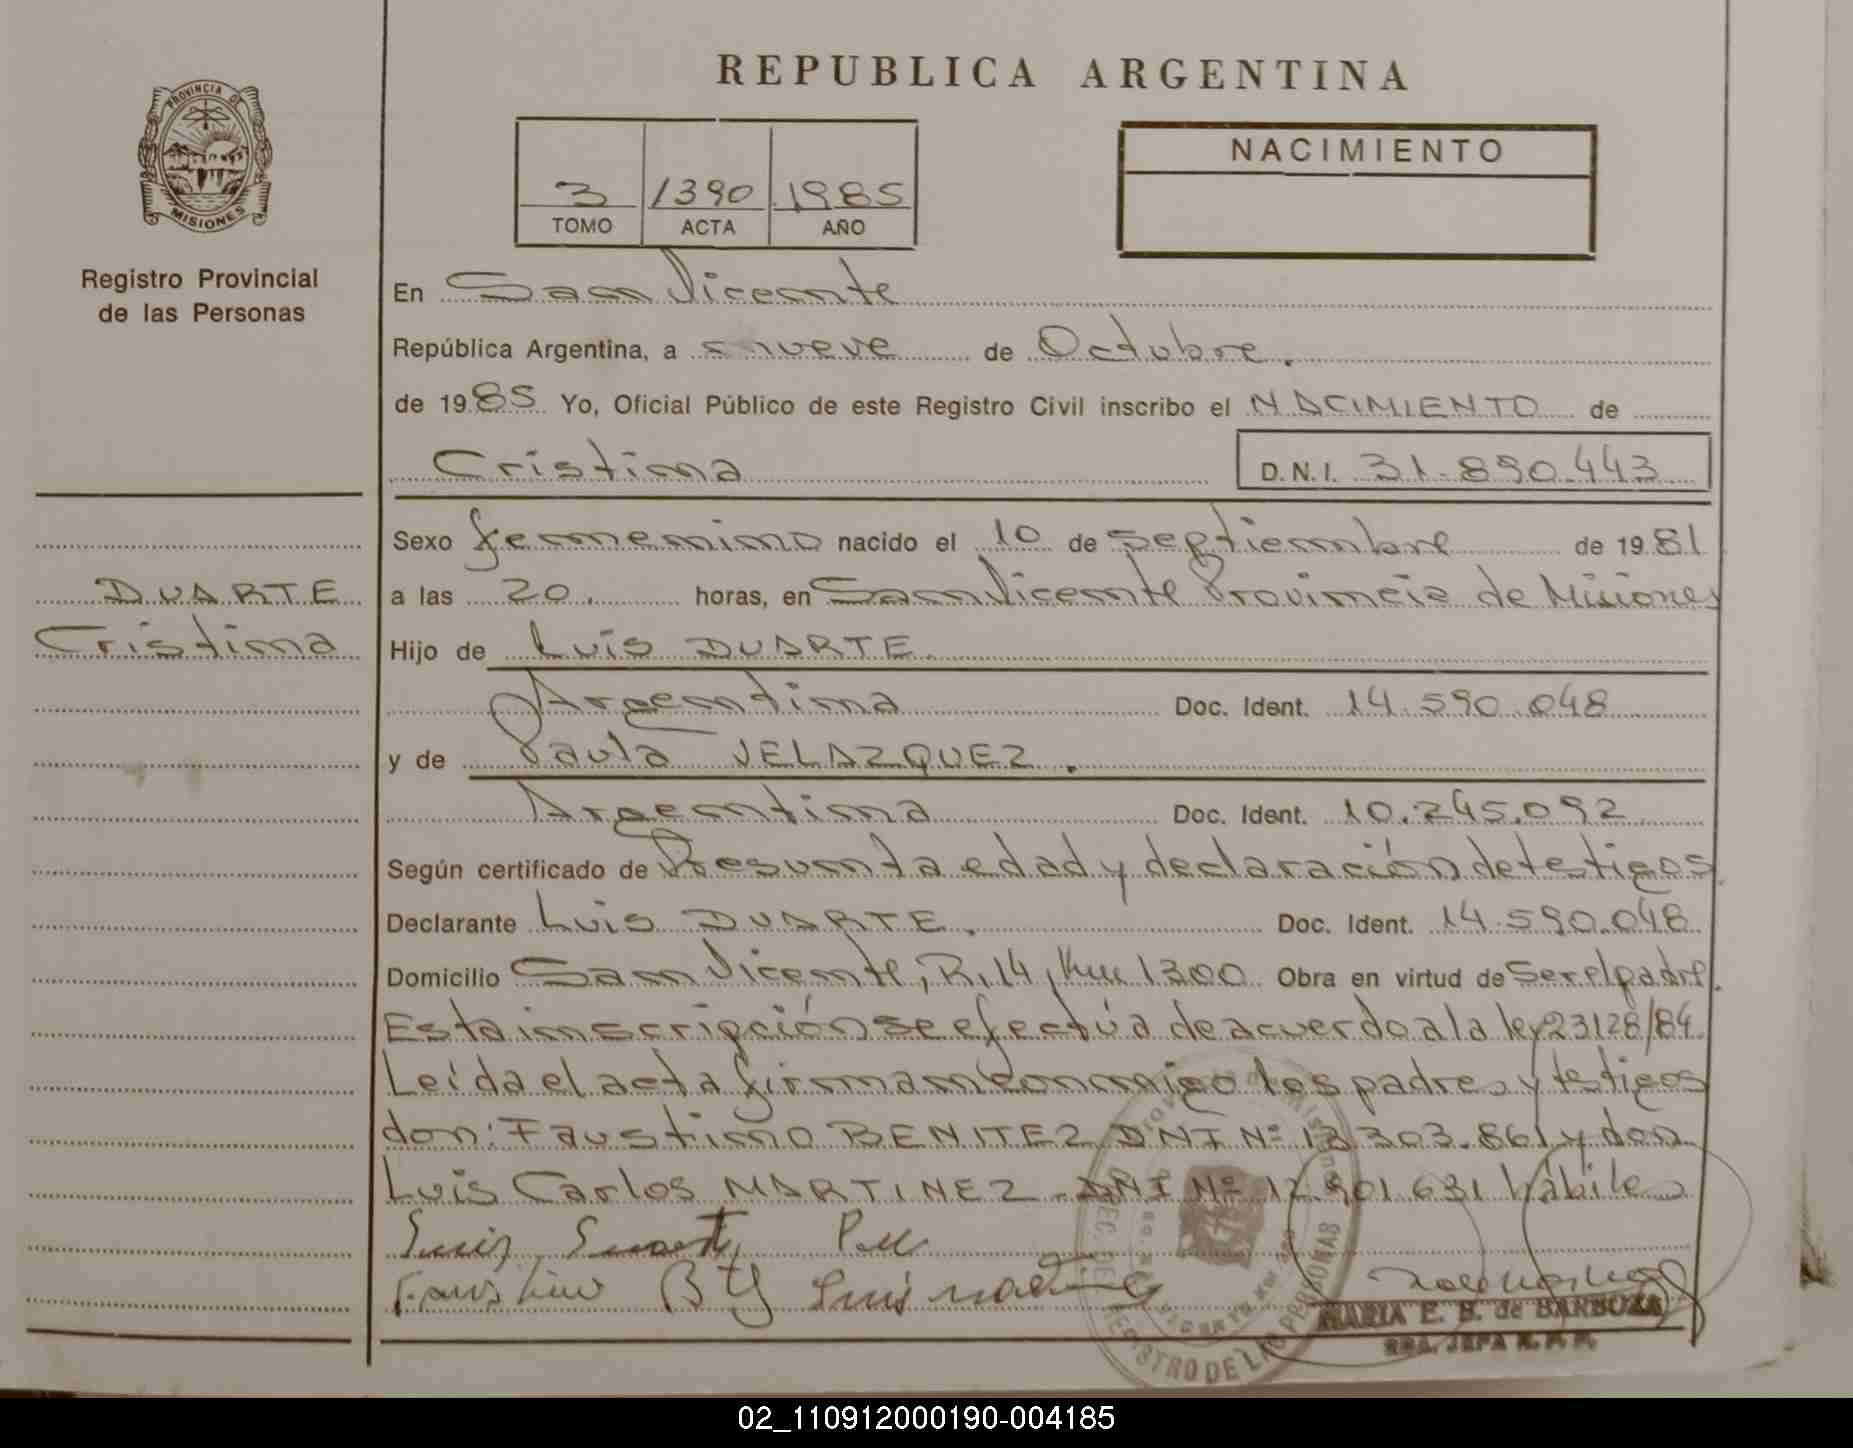 PROVINCIA DE
MISIONES
Registro Provincial
de las Personas
DUARTE
Cristina
REPUBLICA ARGENTINA
3 1390 1985
TOMO ACTA AÑO
NACIMIENTO
En San Vicente
República Argentina, a nueve de Octubre.
de 1985 Yo, Oficial Público de este Registro Civil inscribo el NACIMIENTO de
Cristina D.N.I. 31.890.443
Sexo femenino nacido el 10 de septiembre de 1981
a las 20. horas, en San Vicente Provincia de Misiones
Hijo de Luis DUARTE.
Argentina Doc. Ident. 14.590.048
y de Paula VELAZQUEZ.
Argentina Doc. Ident. 10.245.092
Según certificado de Presunta edad y declaración de testigos.
Declarante Luis DUARTE. Doc. Ident. 14.590.048
Domicilio San Vicente, R. 14, Km 1300 Obra en virtud de Ser el padre.
Esta inscripción se efectúa de acuerdo a la ley 23128/84.
Leída el acta firman conmigo los padres y testigos
don: Faustino BENITEZ DNI Nº 13.303.861 y don
Luis Carlos MARTINEZ DNI Nº 12.901.631 hábiles
Luis Duarte
Faustino Luis
REGISTRO DE LAS PERSONAS
MARIA E. B. de BARBOZA
02_110912000190-004185